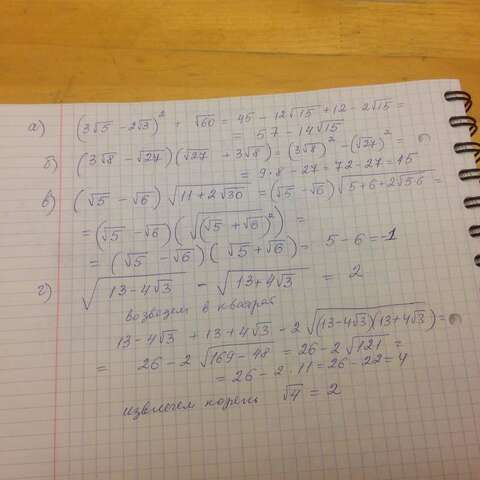 а) (3√5 - 2√3)² + √60 = 45 - 12√15 + 12 - 2√15 =
= 57 - 14√15
б) (3√8 - √27)(√27 + 3√8) = (3√8)² - (√27)² =
= 9·8 - 27 = 72 - 27 = 45
в) (√5 - √6) √(11 + 2√30) = (√5 - √6) √(5 + 6 + 2√5·6) =
= (√5 - √6)(√(√5 + √6)²) =
= (√5 - √6)(√5 + √6) = 5 - 6 = -1
г) √(13 - 4√3) - √(13 + 4√3) = 2
возведем в квадрат
13 - 4√3 + 13 + 4√3 - 2√((13 - 4√3)(13 + 4√3)) =
= 26 - 2√(169 - 48) = 26 - 2√121 =
= 26 - 2·11 = 26 - 22 = 4
извлечем корень √4 = 2